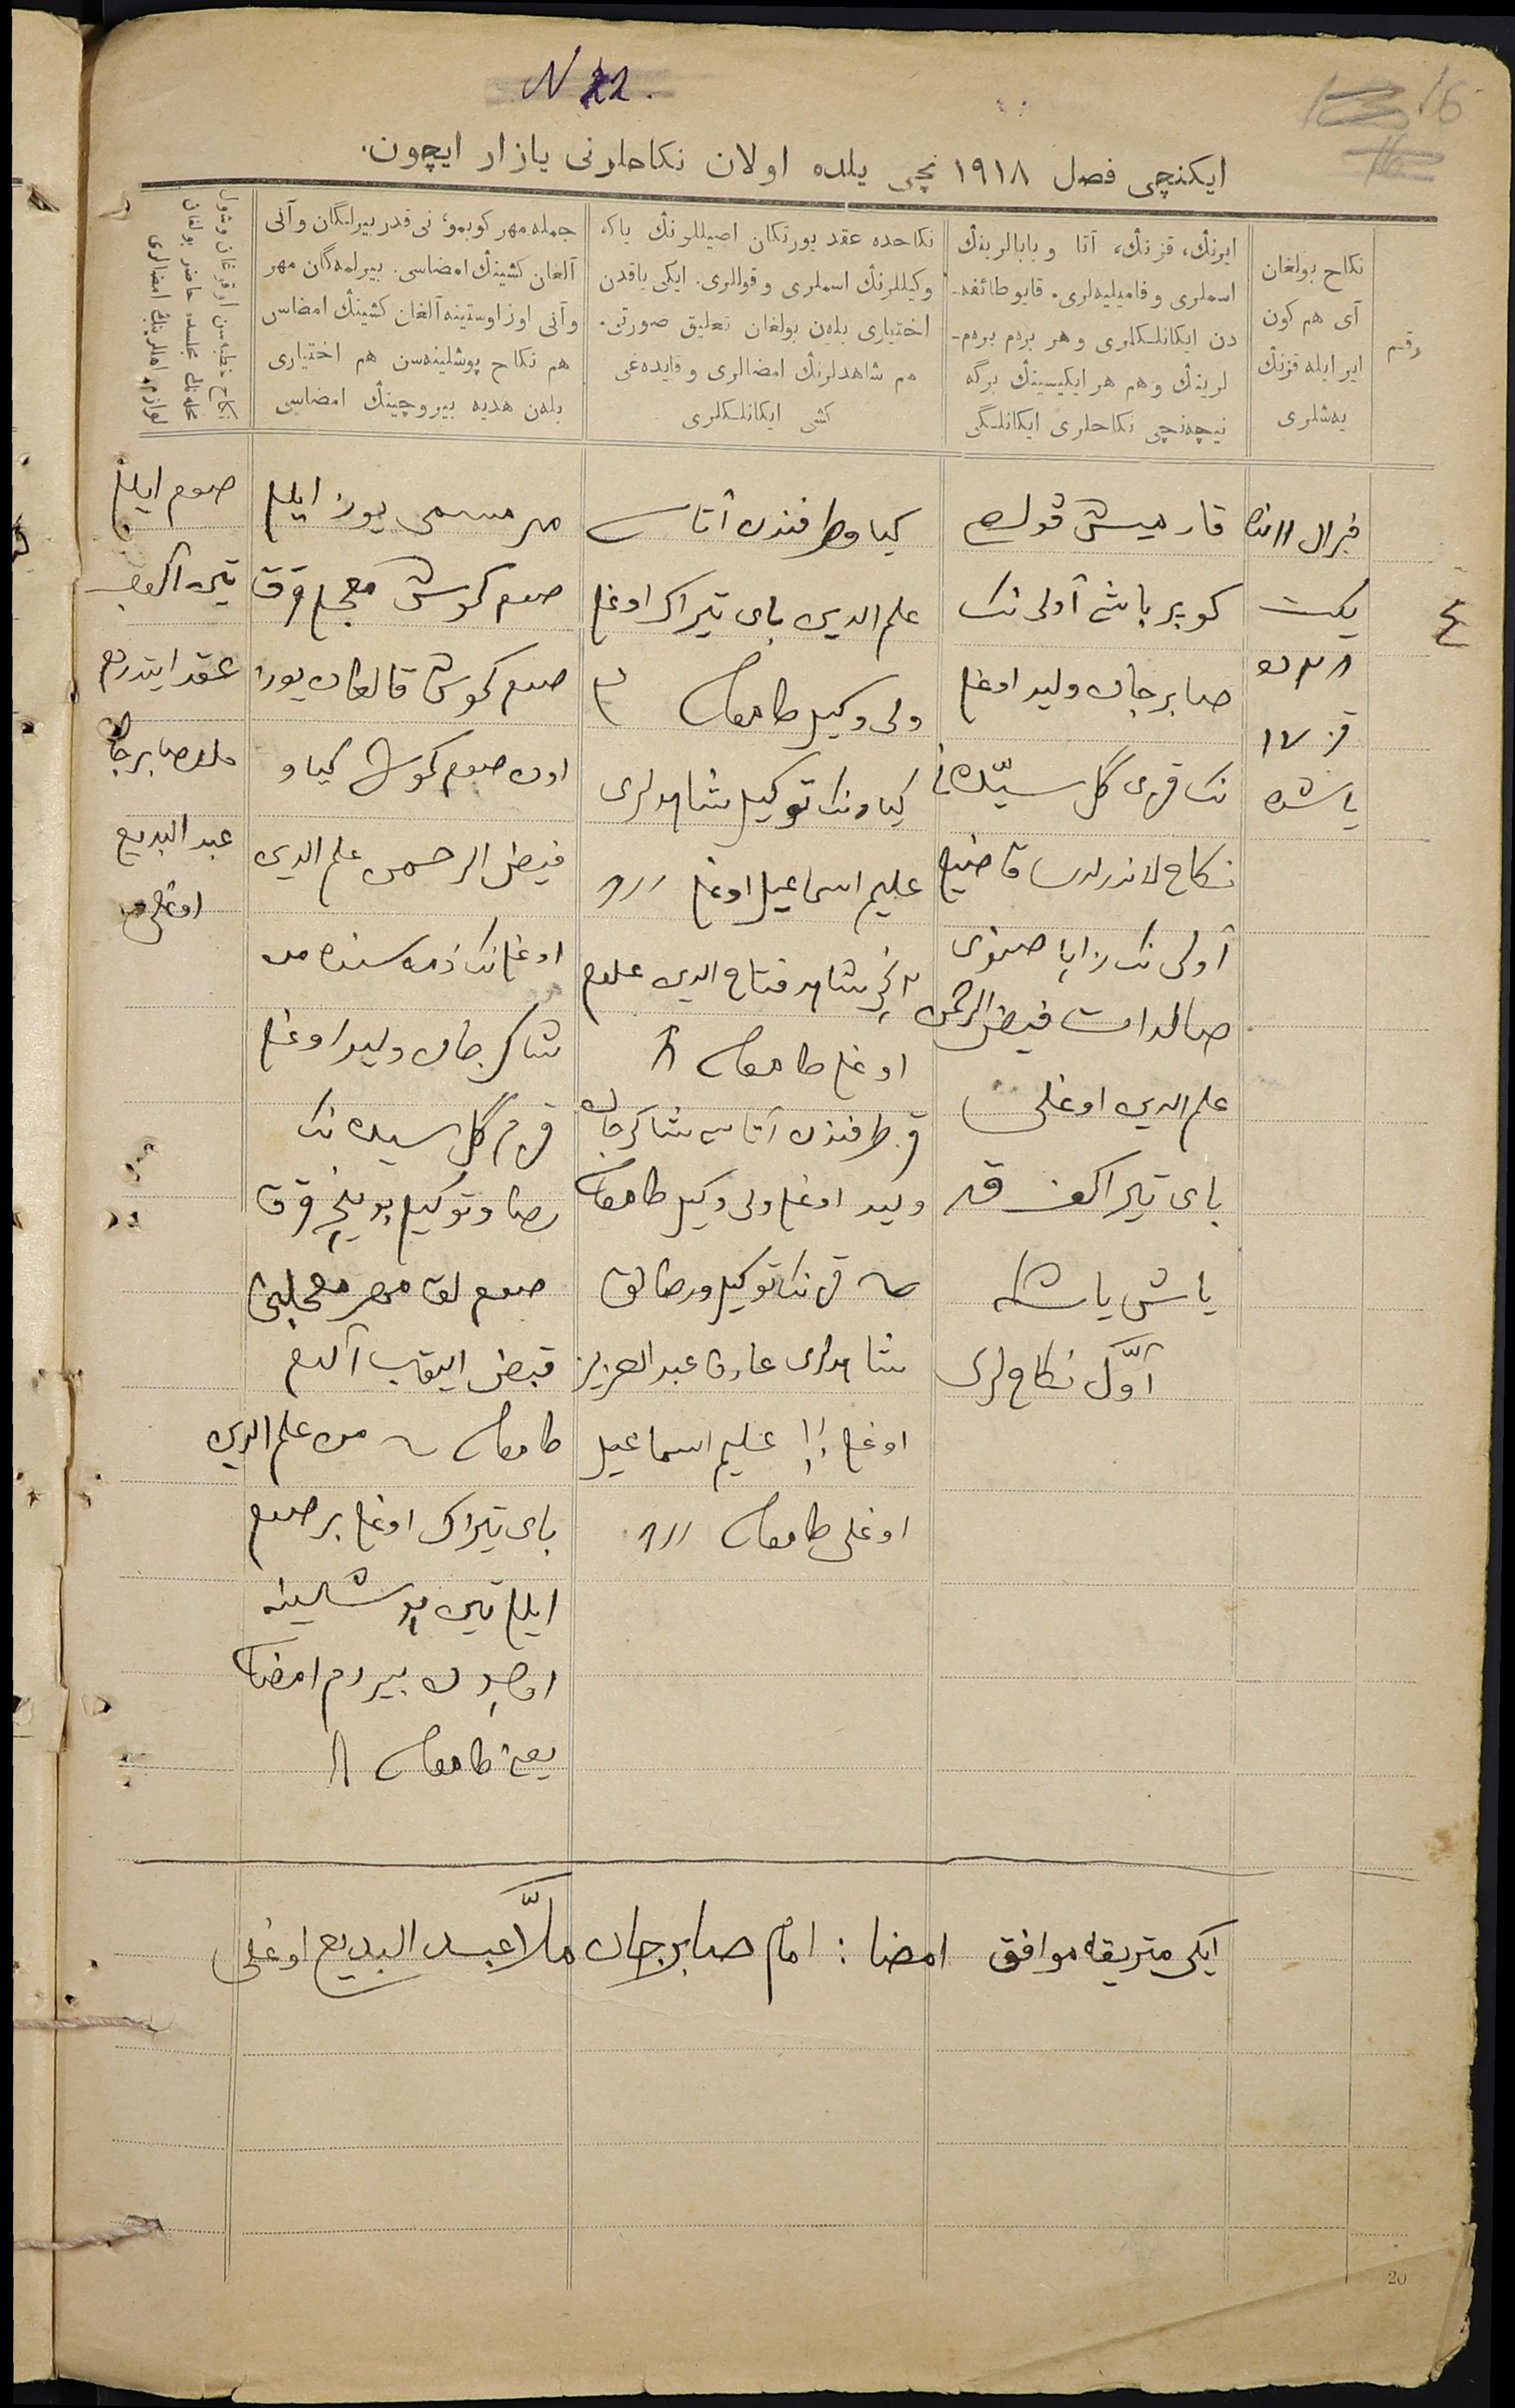 N 22.
16
ایکنچی فصل ۱۹۱۸ نچی یلده اولان نکاحلرنی یازار ایچون.
رقم
نکاح بولغان
آی هم کون
ایر ایله قزنڭ
یەشلری
ایرنڭ، قزنڭ، آتا و بابالرینڭ
اسملری و فامیلیەلری. قایو طائفه-
دن ایکانلکلری و هر برەم برەم-
لرینڭ و هم هر ایکیسینڭ برگه
نیچەنچی نکاحلری ایکانلگی
نکاحده عقد یورتکان اصیللرنڭ یاکه
وکیللرنڭ اسملری و قوللری. ایکی یاقدن
اختیاری بلەن بولغان تعلیق صورتی.
هم شاهدلرنڭ امضالری و قایدەغی
کشی ایکانلکلری
جمله مهر کوبمو، نی قدر بیرلگان و آنی
آلغان کشینڭ امضاسی. بیرلمەگان مهر
و آنی اوز اوستینه آلغان کشینڭ امضاسی
هم نکاح پوشلینەسن هم اختیاری
بلەن هدیه بیروچینڭ امضاسی
نکاح خطبەسن اوقوغان و شول
محلەنڭ مجلسده حاضر بولغان
لوازم اهللرینڭ امضالری
٤
فبرال ۱۱ نده
یکت
۱۷ قز
یاشده
قارمیش ڤولصت
کوپر باشی آولی نک
صابرجان ولید اوغلی
نک قزی گل سیّده نی
نکاحلاندردی قاضیلی
آولی نک
فیض الرحمن
علم الدین اوغلی
بای تیراکف
یاش یاشکه
اوّل نکاحلری
کیاو طرفندن آتاسی
علم الدین بای تیراک اوغلی
ولی وکیل طامغاسی
کیاونک توکیل شاهدلری
علیم اسماعیل اوغلی
شاهد فتاح الدین
اوغلی طامغاسی
قز طرفندن آتاسی شاکرجان
ولید اوغلی ولی وکیل طامغاسی
قزنک توکیل و رضالق
شاهدلری عارف عبد العزیز
اوغلی علیم اسماعیل
اوغلی طامغاسی
مهر مسمی یوز ایللی
صوم کموش معجل قرق
صوم کموش قالغان یوز
اون صوم کموش کیاو
فیض الرحمن علم الدین
اوغلی نک ذمه سنده من
شاکرجان ولید اوغلی
قزم گل سیده نک
رضا و توکیلی بوینچه قرق
صوم لق مهر معجلنی
قبض ایتوب آلدم
طامغاسی من علم الدین
بای تیراک اوغلی بر صوم
ایللی تین پوشلینه
اوچون بیردم امضا
یعنی طامغاسی
صوم ایللی
تین آلوب
عقد ایتدردم
ملا صابرجان
عبد البدیع
اوغلی
ایکی متریقه موافق امضا : امام صابرجان ملّا عبد البدیع اوغلی
20